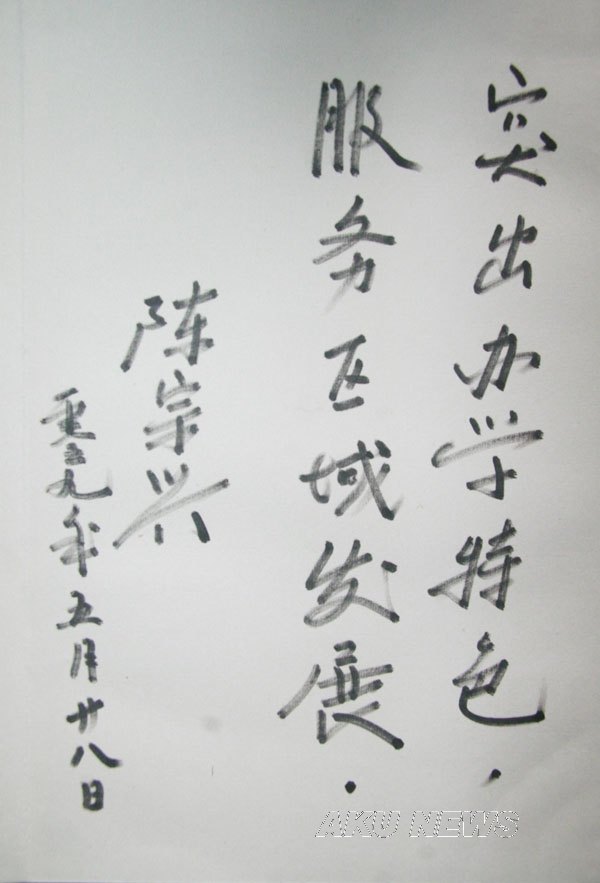 突出办学特色.
服务区域发展.
陈宗兴
年五月廿八日
AKU NEWS